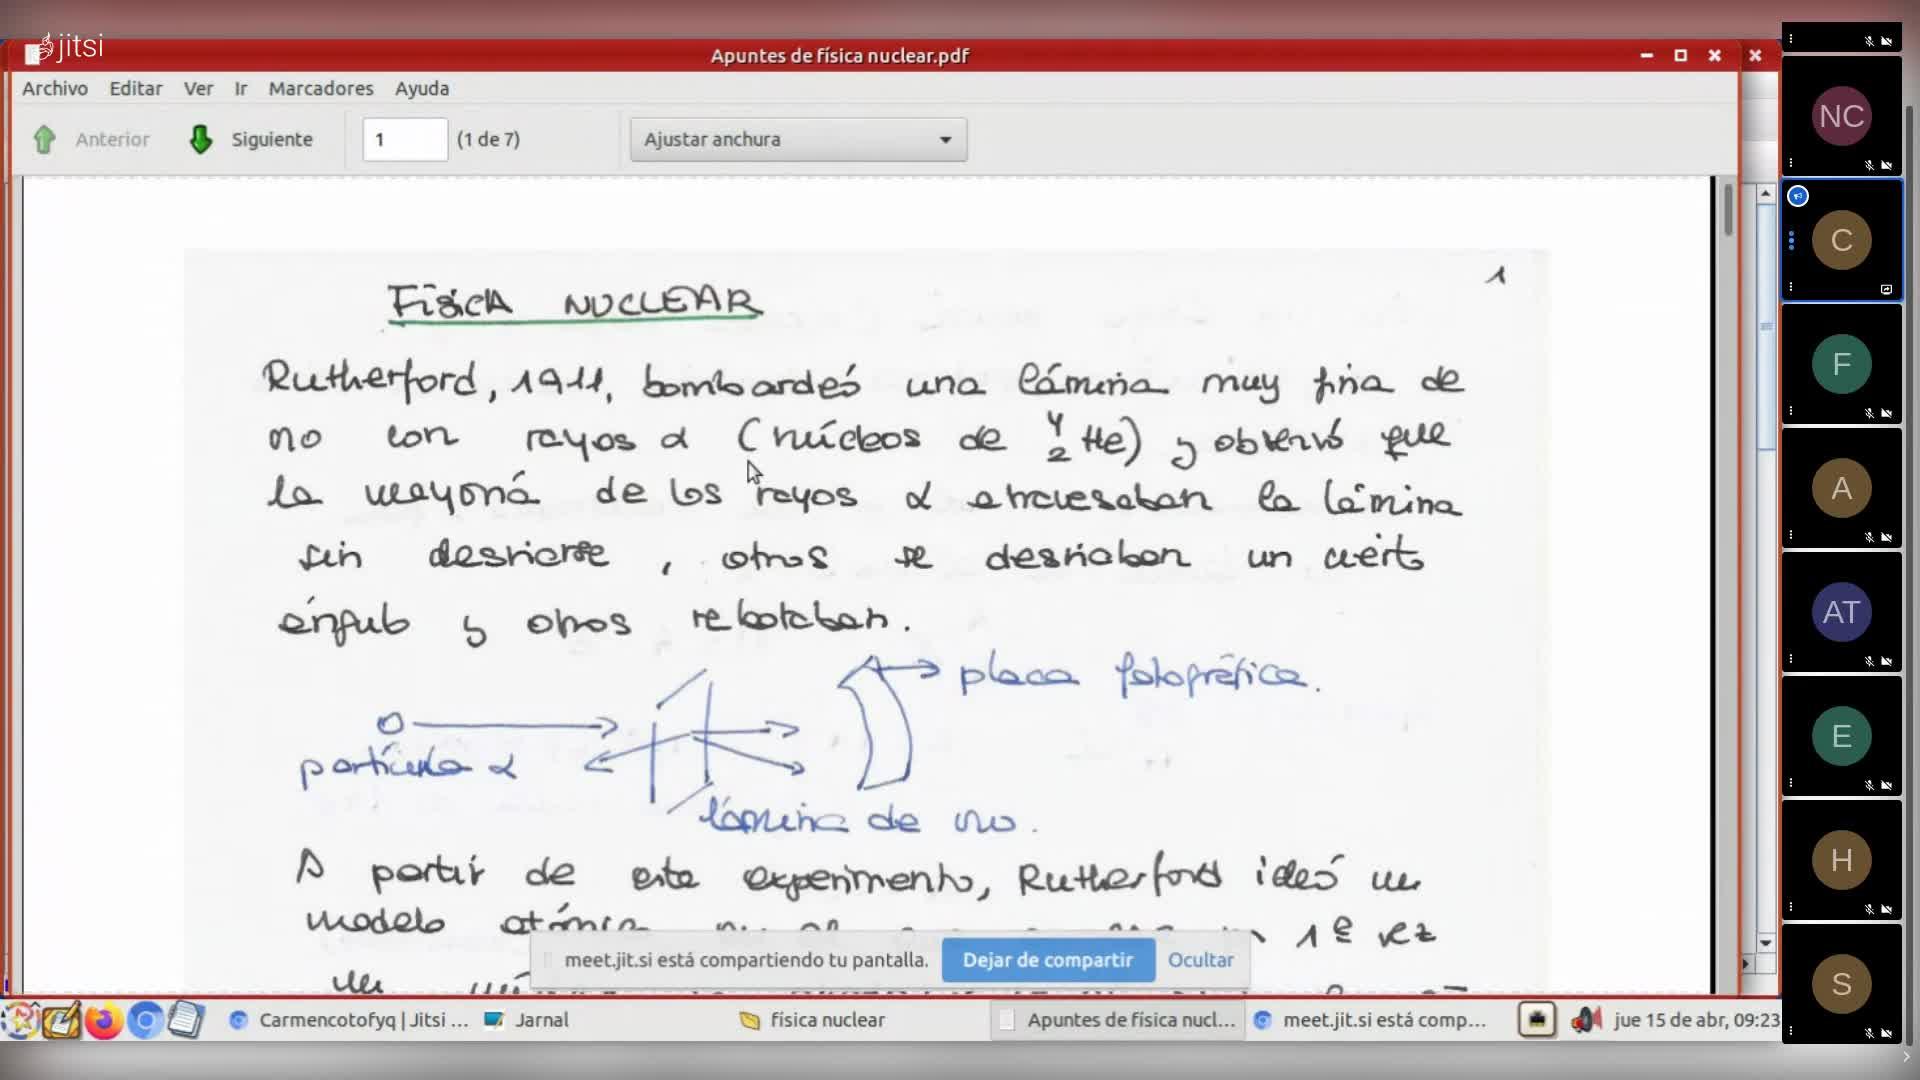 jitsi
Apuntes de física nuclear.pdf
Archivo Editar Ver Ir Marcadores Ayuda
Anterior Siguiente 1 (1 de 7) Ajustar anchura
1
FísicA NUCLEAR
Rutherford, 1911, bombardeó una lámina muy fina de
oro con rayos α (núcleos de ⁴₂He) y observó que
la mayoría de los rayos α atravesaban la lámina
sin desviarse, otros se desviaban un cierto
ángulo y otros rebotaban.
placa fotográfica.
partícula α
lámina de oro.
A partir de este experimento, Rutherford ideó un
modelo atómico 1ª vez
un
meet.jit.si está compartiendo tu pantalla. Dejar de compartir Ocultar
Carmencotofyq | Jitsi ... Jarnal física nuclear Apuntes de física nucl... meet.jit.si está comp... jue 15 de abr, 09:23
NC
C
F
A
AT
E
H
S